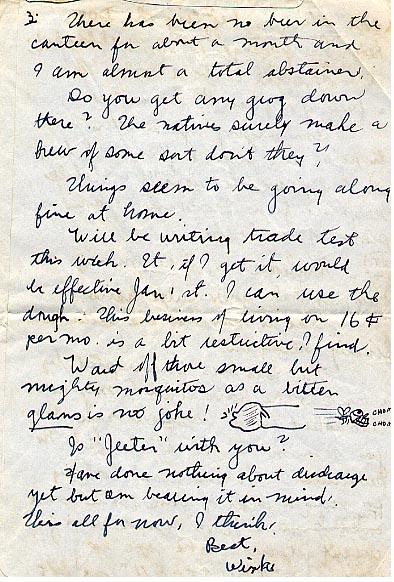 3. There has been no beer in the
canteen for about a month and
I am almost a total abstainer.
Do you get any grog down
there? The natives surely make a
brew of some sort don't they?!
Things seem to be going along
fine at home.
Will be writing trade test
this week. It, if I get it, would
be effective Jan 1st. I can use the
dough. This business of living on 16¢
per mo. is a bit restrictive, I find.
Ward off those small but
mighty mosquitos as a bitten
glans is no joke!
CHOMP
CHOMP
Is "Jeeter" with you?
Have done nothing about discharge
yet but am bearing it in mind.
This all for now, I think.
Best,